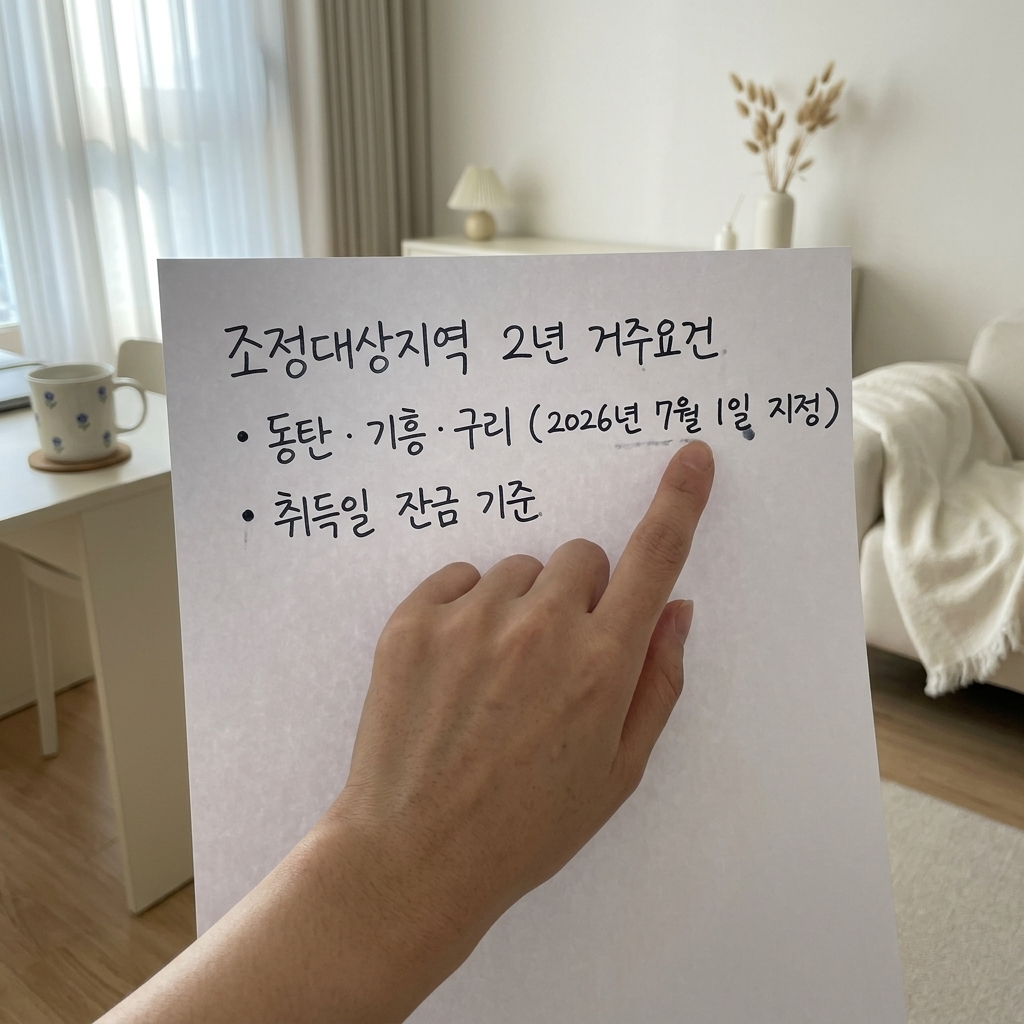 조정대상지역 2년 거주요건
• 동탄 · 기흥 · 구리 (2026년 7월 1일 지정)
• 취득일 잔금 기준